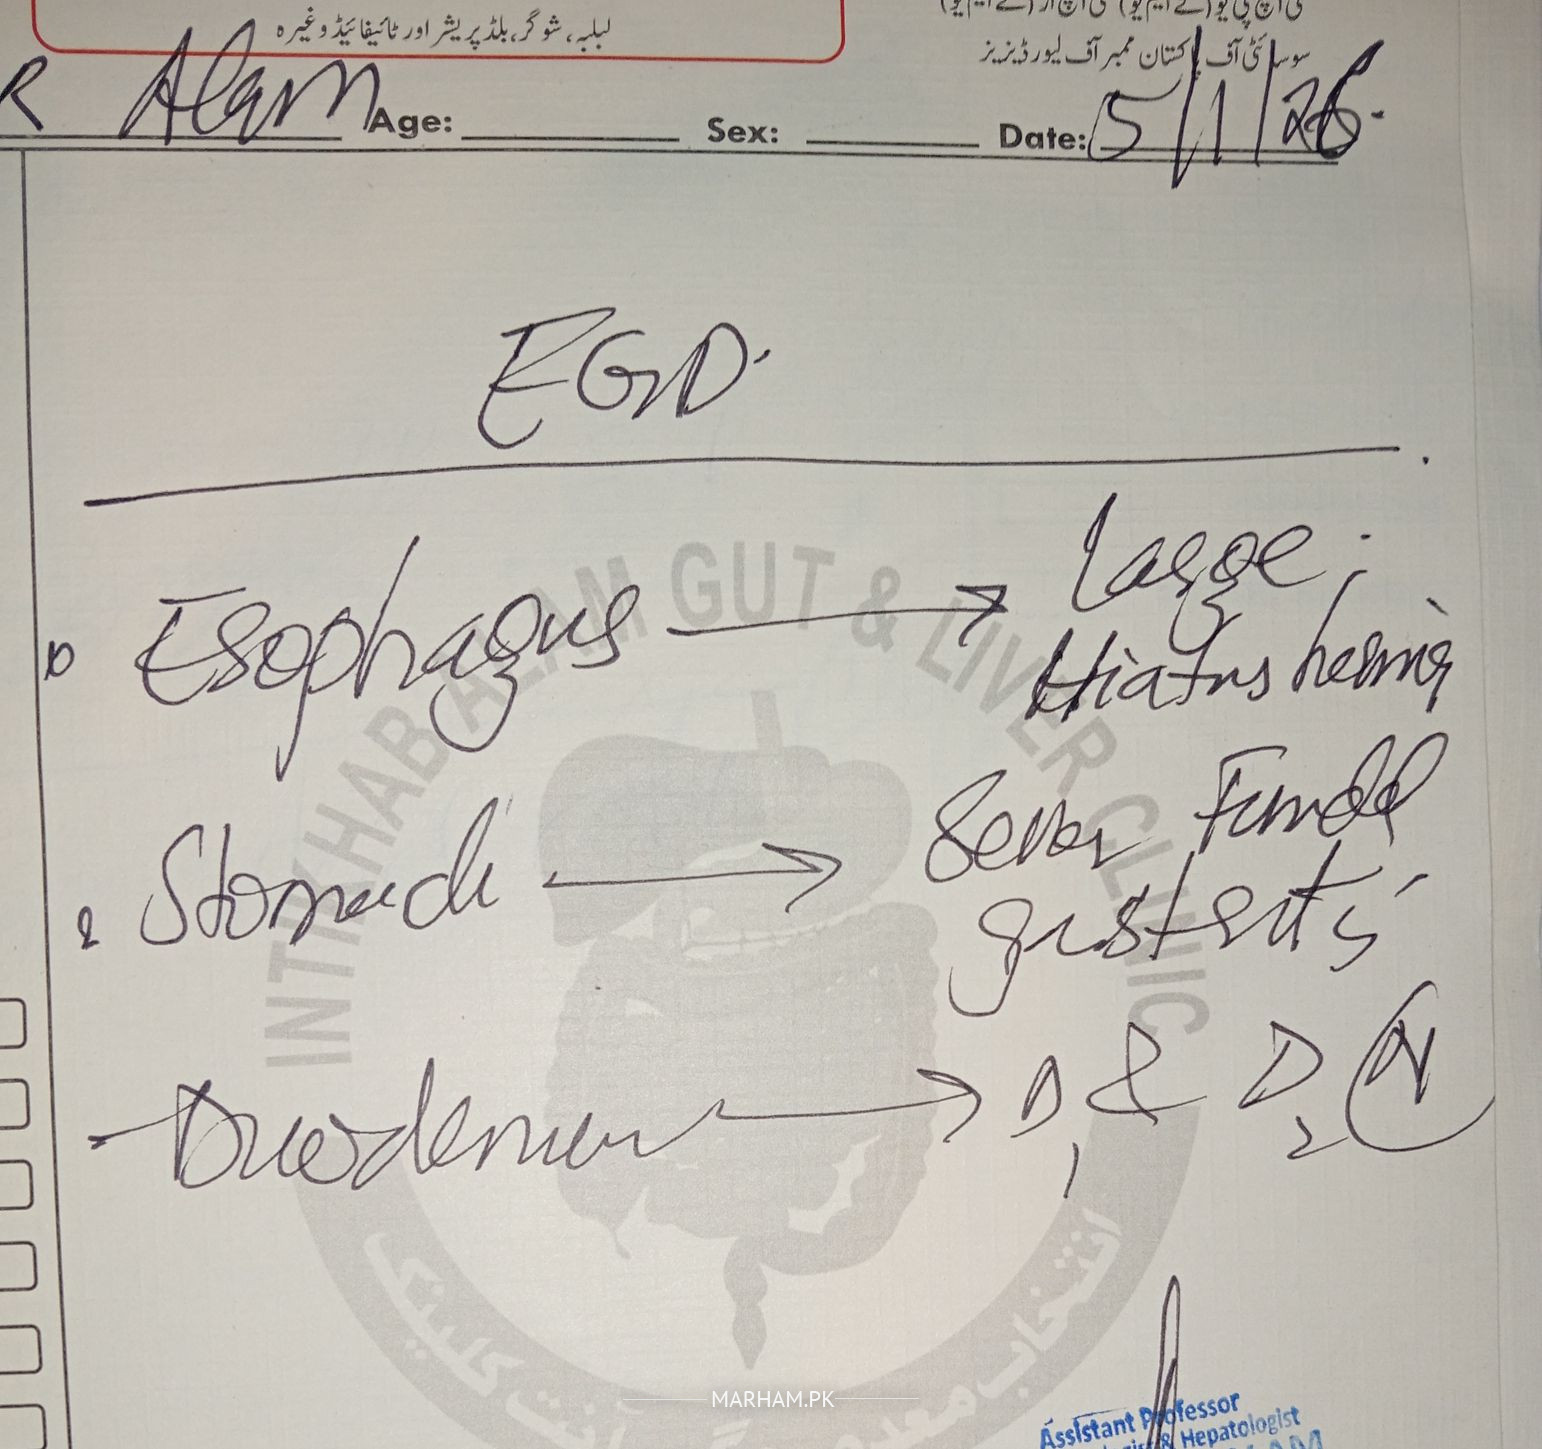 لبلبہ، شوگر، بلڈ پریشر اور ٹائیفائیڈ وغیرہ
سوسائٹی آف پاکستان ممبر آف لیور ڈیزیز
R Alam Age: Sex: Date: 5/1/26
EGD
Esophagus → Large
Hiatus hernia
Stomach → Sever Fundal
gastritis
Duodenum → D1 & D2 N
INTIKHAB ALAM GUT & LIVER CLINIC
MARHAM.PK
Assistant Professor
& Hepatologist